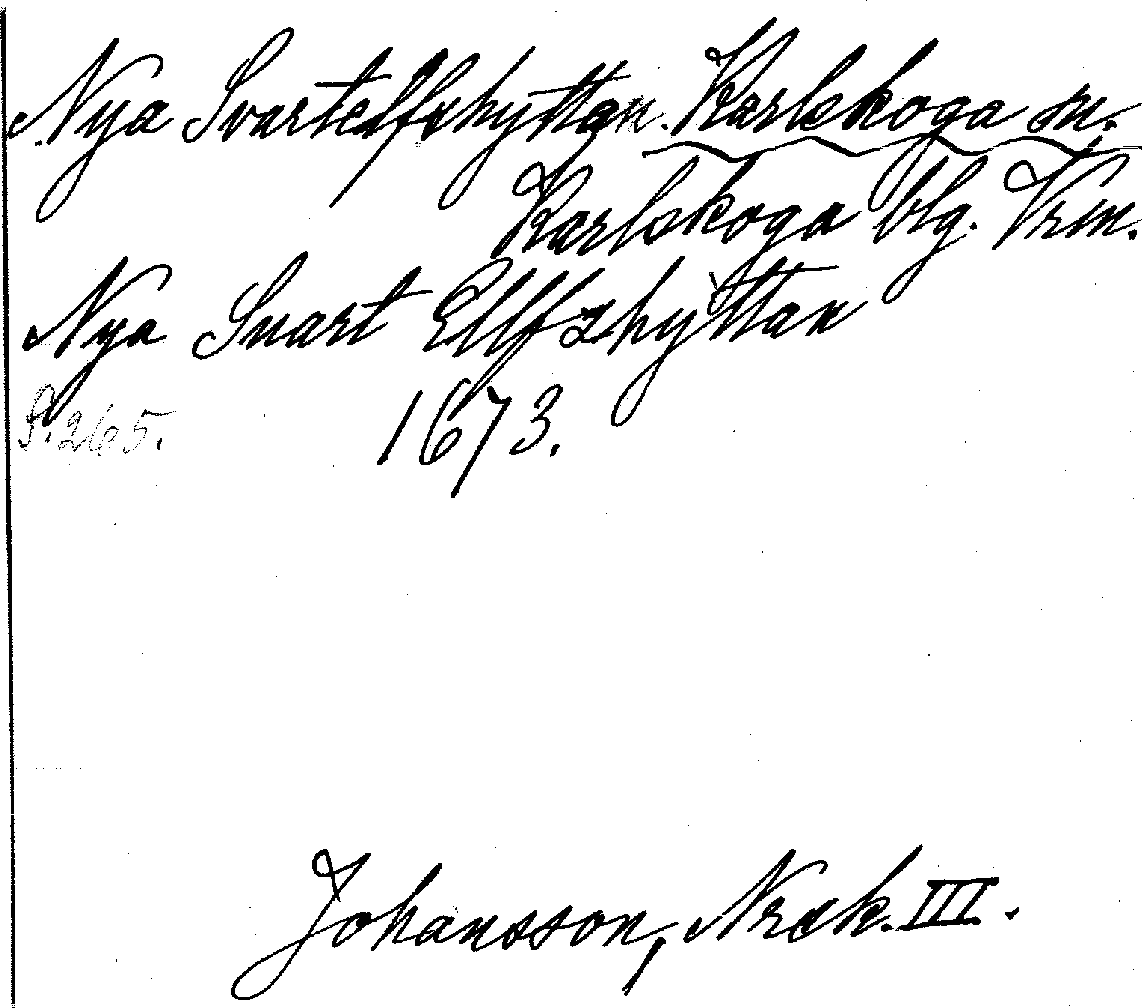 Nya Svartelfshyttan. Karlskoga sn.
Karlskoga blg. Vrm.
Nya Suart Ellfzhyttan
S. 265. 1673.
Johansson, Nrck. III.